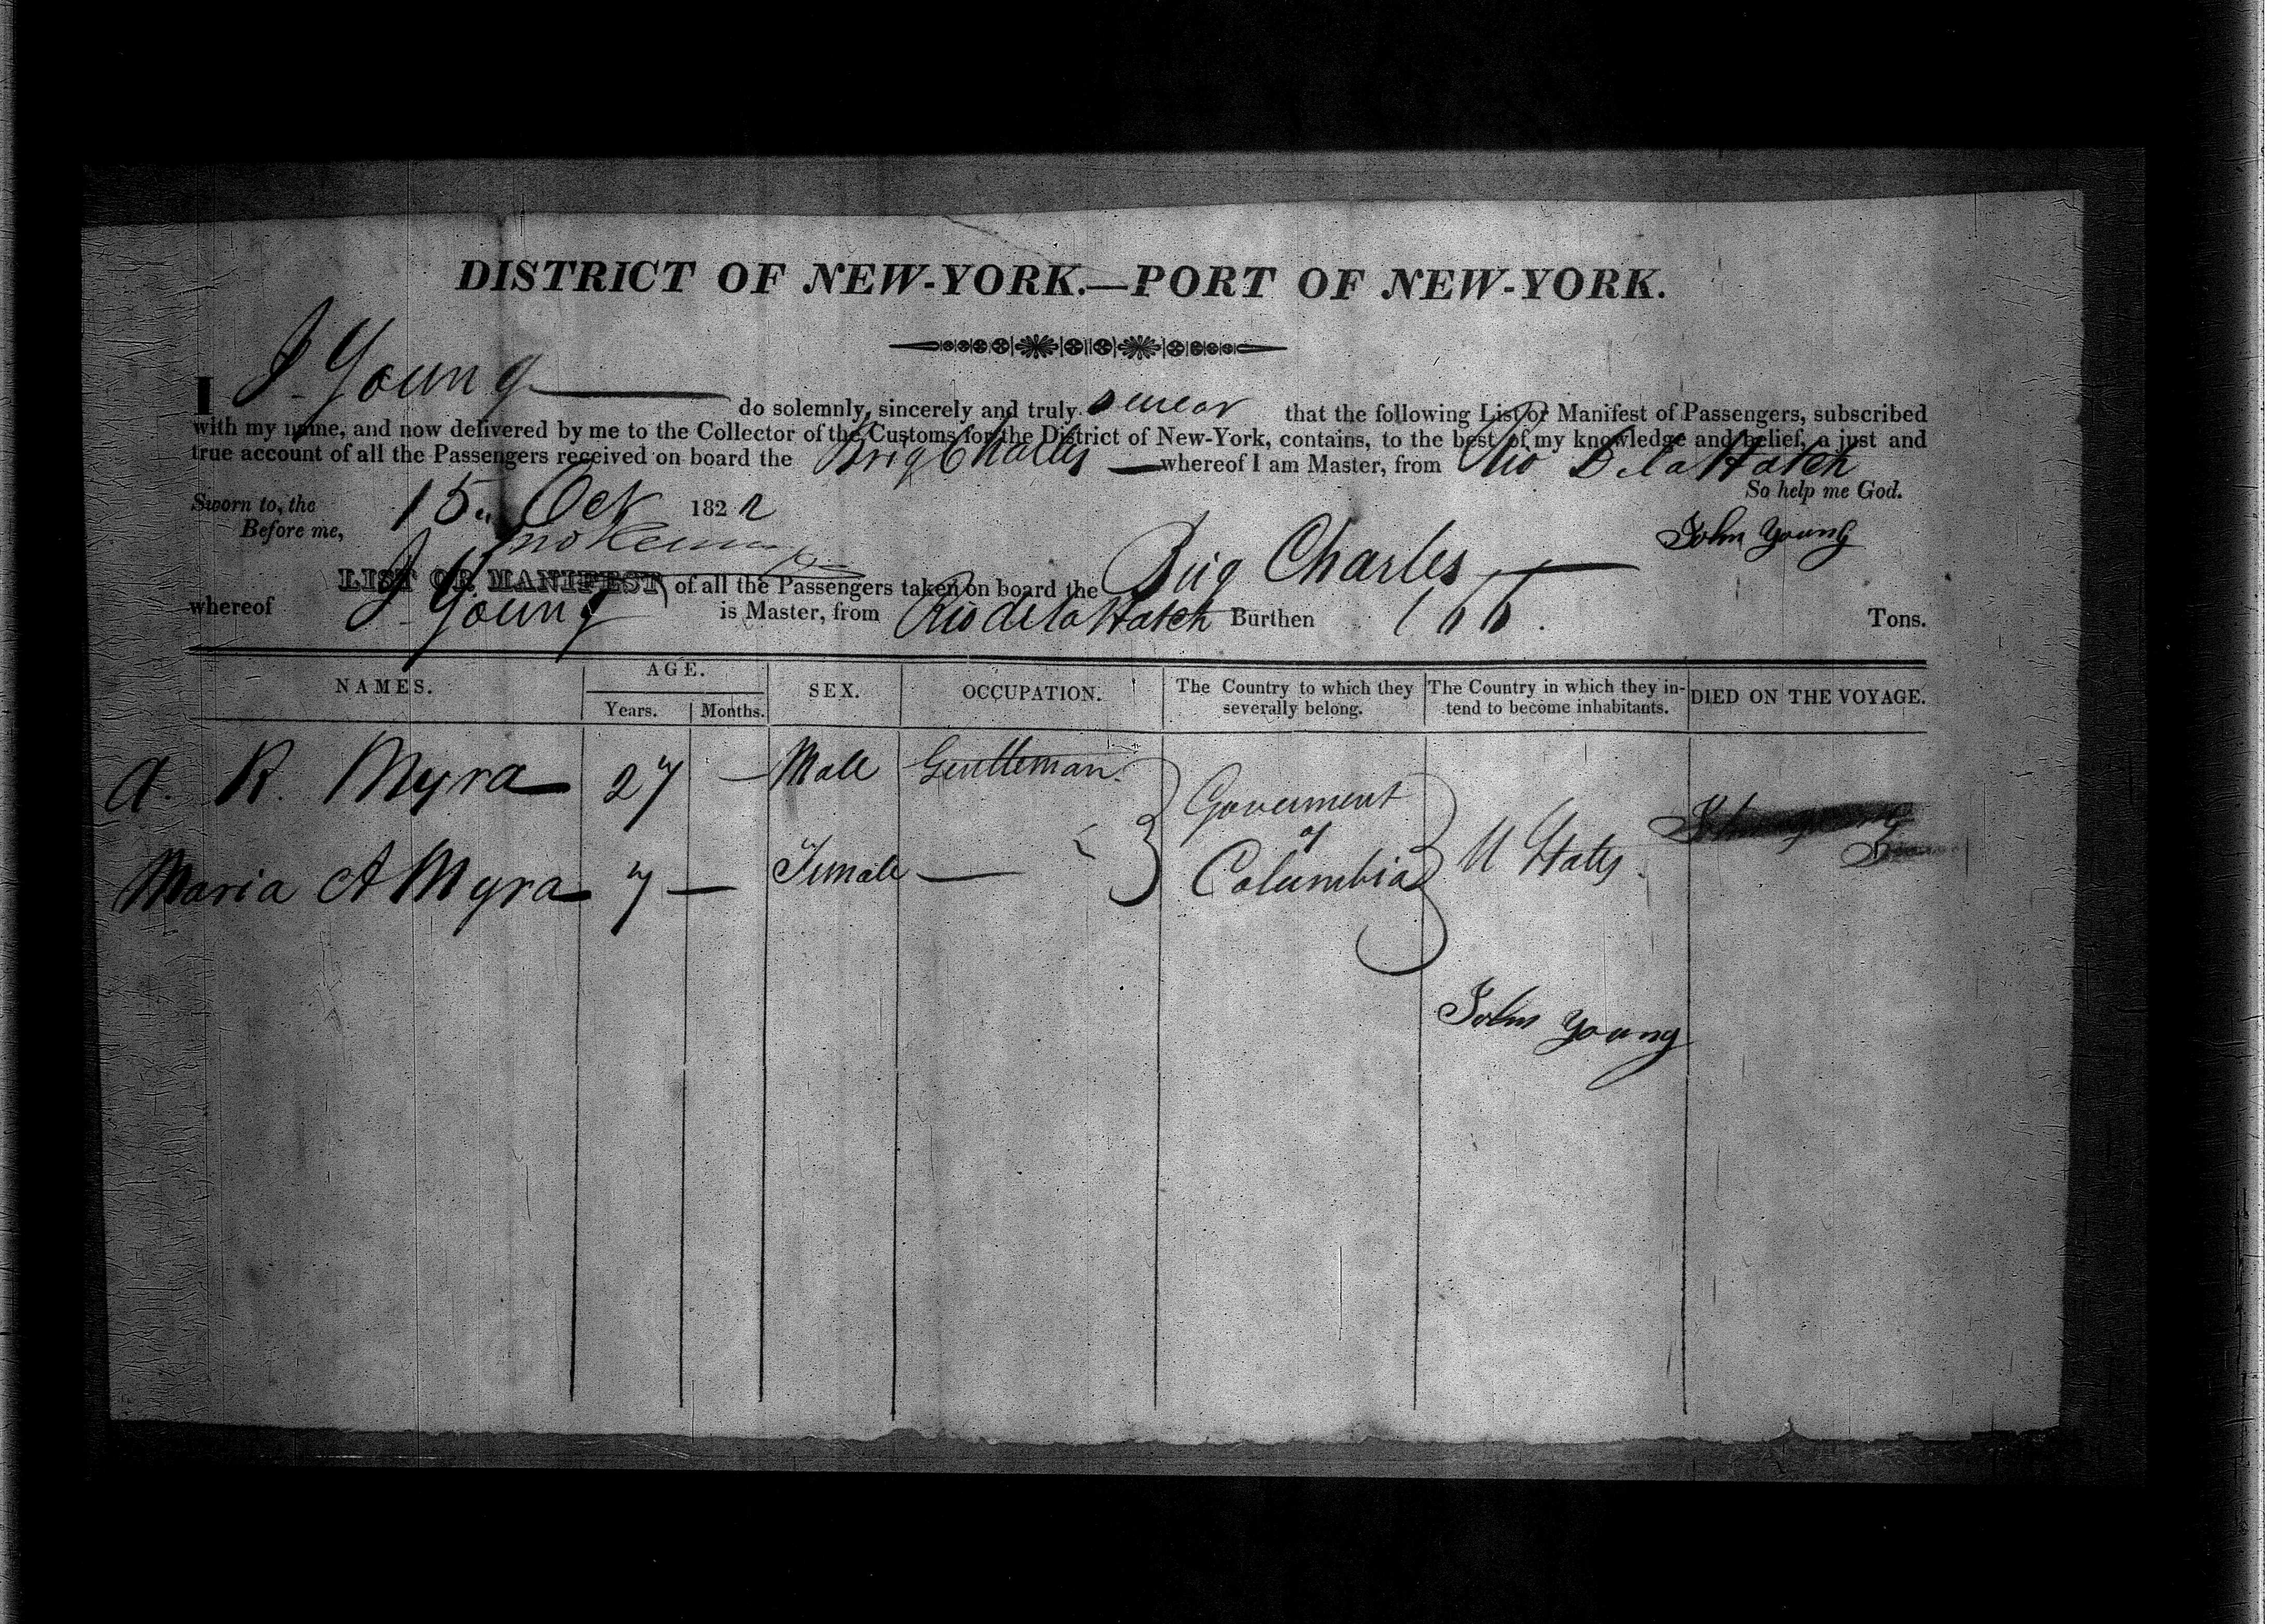 DISTRICT OF NEW-YORK.—PORT OF NEW-YORK.
I J. Young do solemnly, sincerely and truly swear that the following List or Manifest of Passengers, subscribed
with my name, and now delivered by me to the Collector of the Customs for the District of New-York, contains, to the best of my knowledge and belief, a just and
true account of all the Passengers received on board the Brig Charles — whereof I am Master, from Rio De la Hatch
So help me God.
Sworn to, the 15 Oct 1822
Before me,
John Young
LIST OR MANIFEST of all the Passengers taken on board the Brig Charles —
whereof J. Young is Master, from Rio de la Hatch Burthen 166. Tons.
NAMES. AGE. SEX. OCCUPATION. The Country to which they severally belong. The Country in which they intend to become inhabitants. DIED ON THE VOYAGE.
Years. Months.
A. R. Myra 27 — Male Gentleman.
Maria A Myra 7 — Female —
Goverment
of
Columbia
U States.
John Young